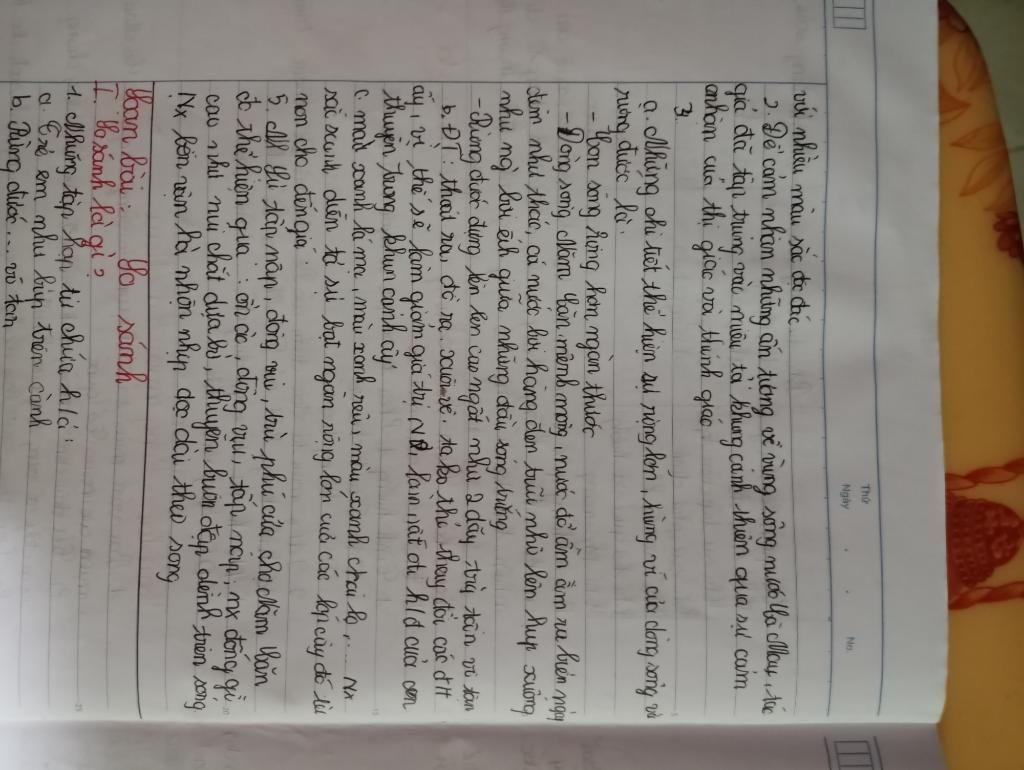 Thứ
Ngày
No.
với nhiều màu sắc độc đáo
2. Để cảm nhận những ấn tượng về vùng sông nước Cà Mau, tác
giả đã tập trung vào miêu tả khung cảnh thiên qua sự cảm
nhận của thị giác và thính giác
3.
a. Những chi tiết thể hiện sự rộng lớn, hùng vĩ của dòng sông và
rừng đước là:
- Con sông rộng hơn ngàn thước
- Dòng sông Năm Căn mênh mông, nước đổ ầm ầm ra biển ngày
đêm như thác, cá nước bơi hàng đàn trũi nhô lên hụp xuống
như ng bơi ếch giữa những đầu sóng trắng
- Rừng đước dựng lên cao ngất như 2 dãy trường thành vô tận
b. ĐT: thoát ra, đổ ra, xuôi về. ta ko thể thay đổi các ĐT
ấy, vì thế sẽ làm giảm giá trị, làm mất đi h/đ của con
thuyền trong khun cảnh ấy
c. màu xanh lá mạ, màu xanh rêu màu xanh chai lọ, .... Nx
sắc xanh diễn tả sự bạt ngàn rộng lớn của các lớp cây đó từ
non cho đến già
5. Một thị tấn nập, đông vui, trù phú của chợ Năm Căn
đ thể hiện qua: ồn ào, đông vui, tấp nập, nx đống gỗ
cao như núi chất dựa bờ, thuyền buôn dập dềnh trên sóng
Nx bến vận hà nhộn nhịp dọc dài theo sông
Làm bài: So sánh
I. So sánh là gì?
1. Những tập hợp từ chứa h/ả:
a. Trẻ em như búp trên cành
b. Rừng đước.... vô tận